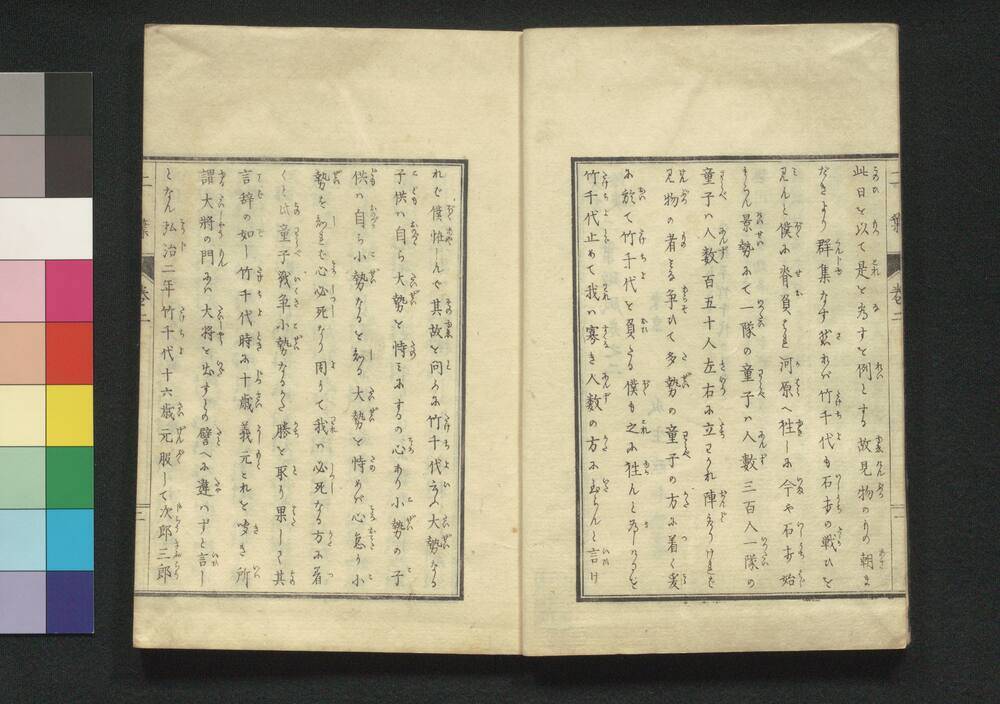 此日を以て是と為すを例とする故見物のもの朝ま
だきより群集なす然れバ竹千代も石打の戦ひを
見んと僕に脊負はれ河原へ往しに今や石打始
まらん景勢にて一隊の童子ハ人數三百人一隊の
童子ハ人数百五十人左右に立わかれ陣取けれど
見物の者ミな争ひて多勢の童子の方に着く爰
に於て竹千代を負たる僕も之に往んと為しけるを
竹千代止めて我ハ寡き人数の方に至らんと言け
れど僕怪しんで其故を問ふに竹千代云ふ大勢なる
子供ハ自ら大勢を恃ミにするの心あり小勢の子
供ハ自ら小勢なるを知る大勢を恃めバ心怠り小
勢を知れバ心必死なり因りて我ハ必死なる方に着
くと此童子戦争小勢なるかた勝を取り果して其
言辞の如し竹千代時に十歳義元これを聞き所
謂大將の門にハ大將を出すとの譬へに違ハずと言し
となん弘治二年竹千代十六歳元服して次郎三郎